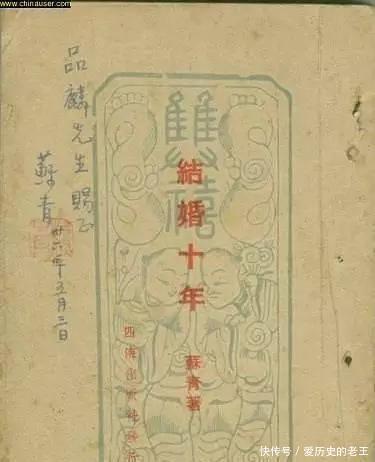 www.chinauser.com
品麟先生賜正
蘇青
卅六年五月三日
雙禧
結婚十年
蘇青著
四海出版社發行
快传号 / 爱历史的老王